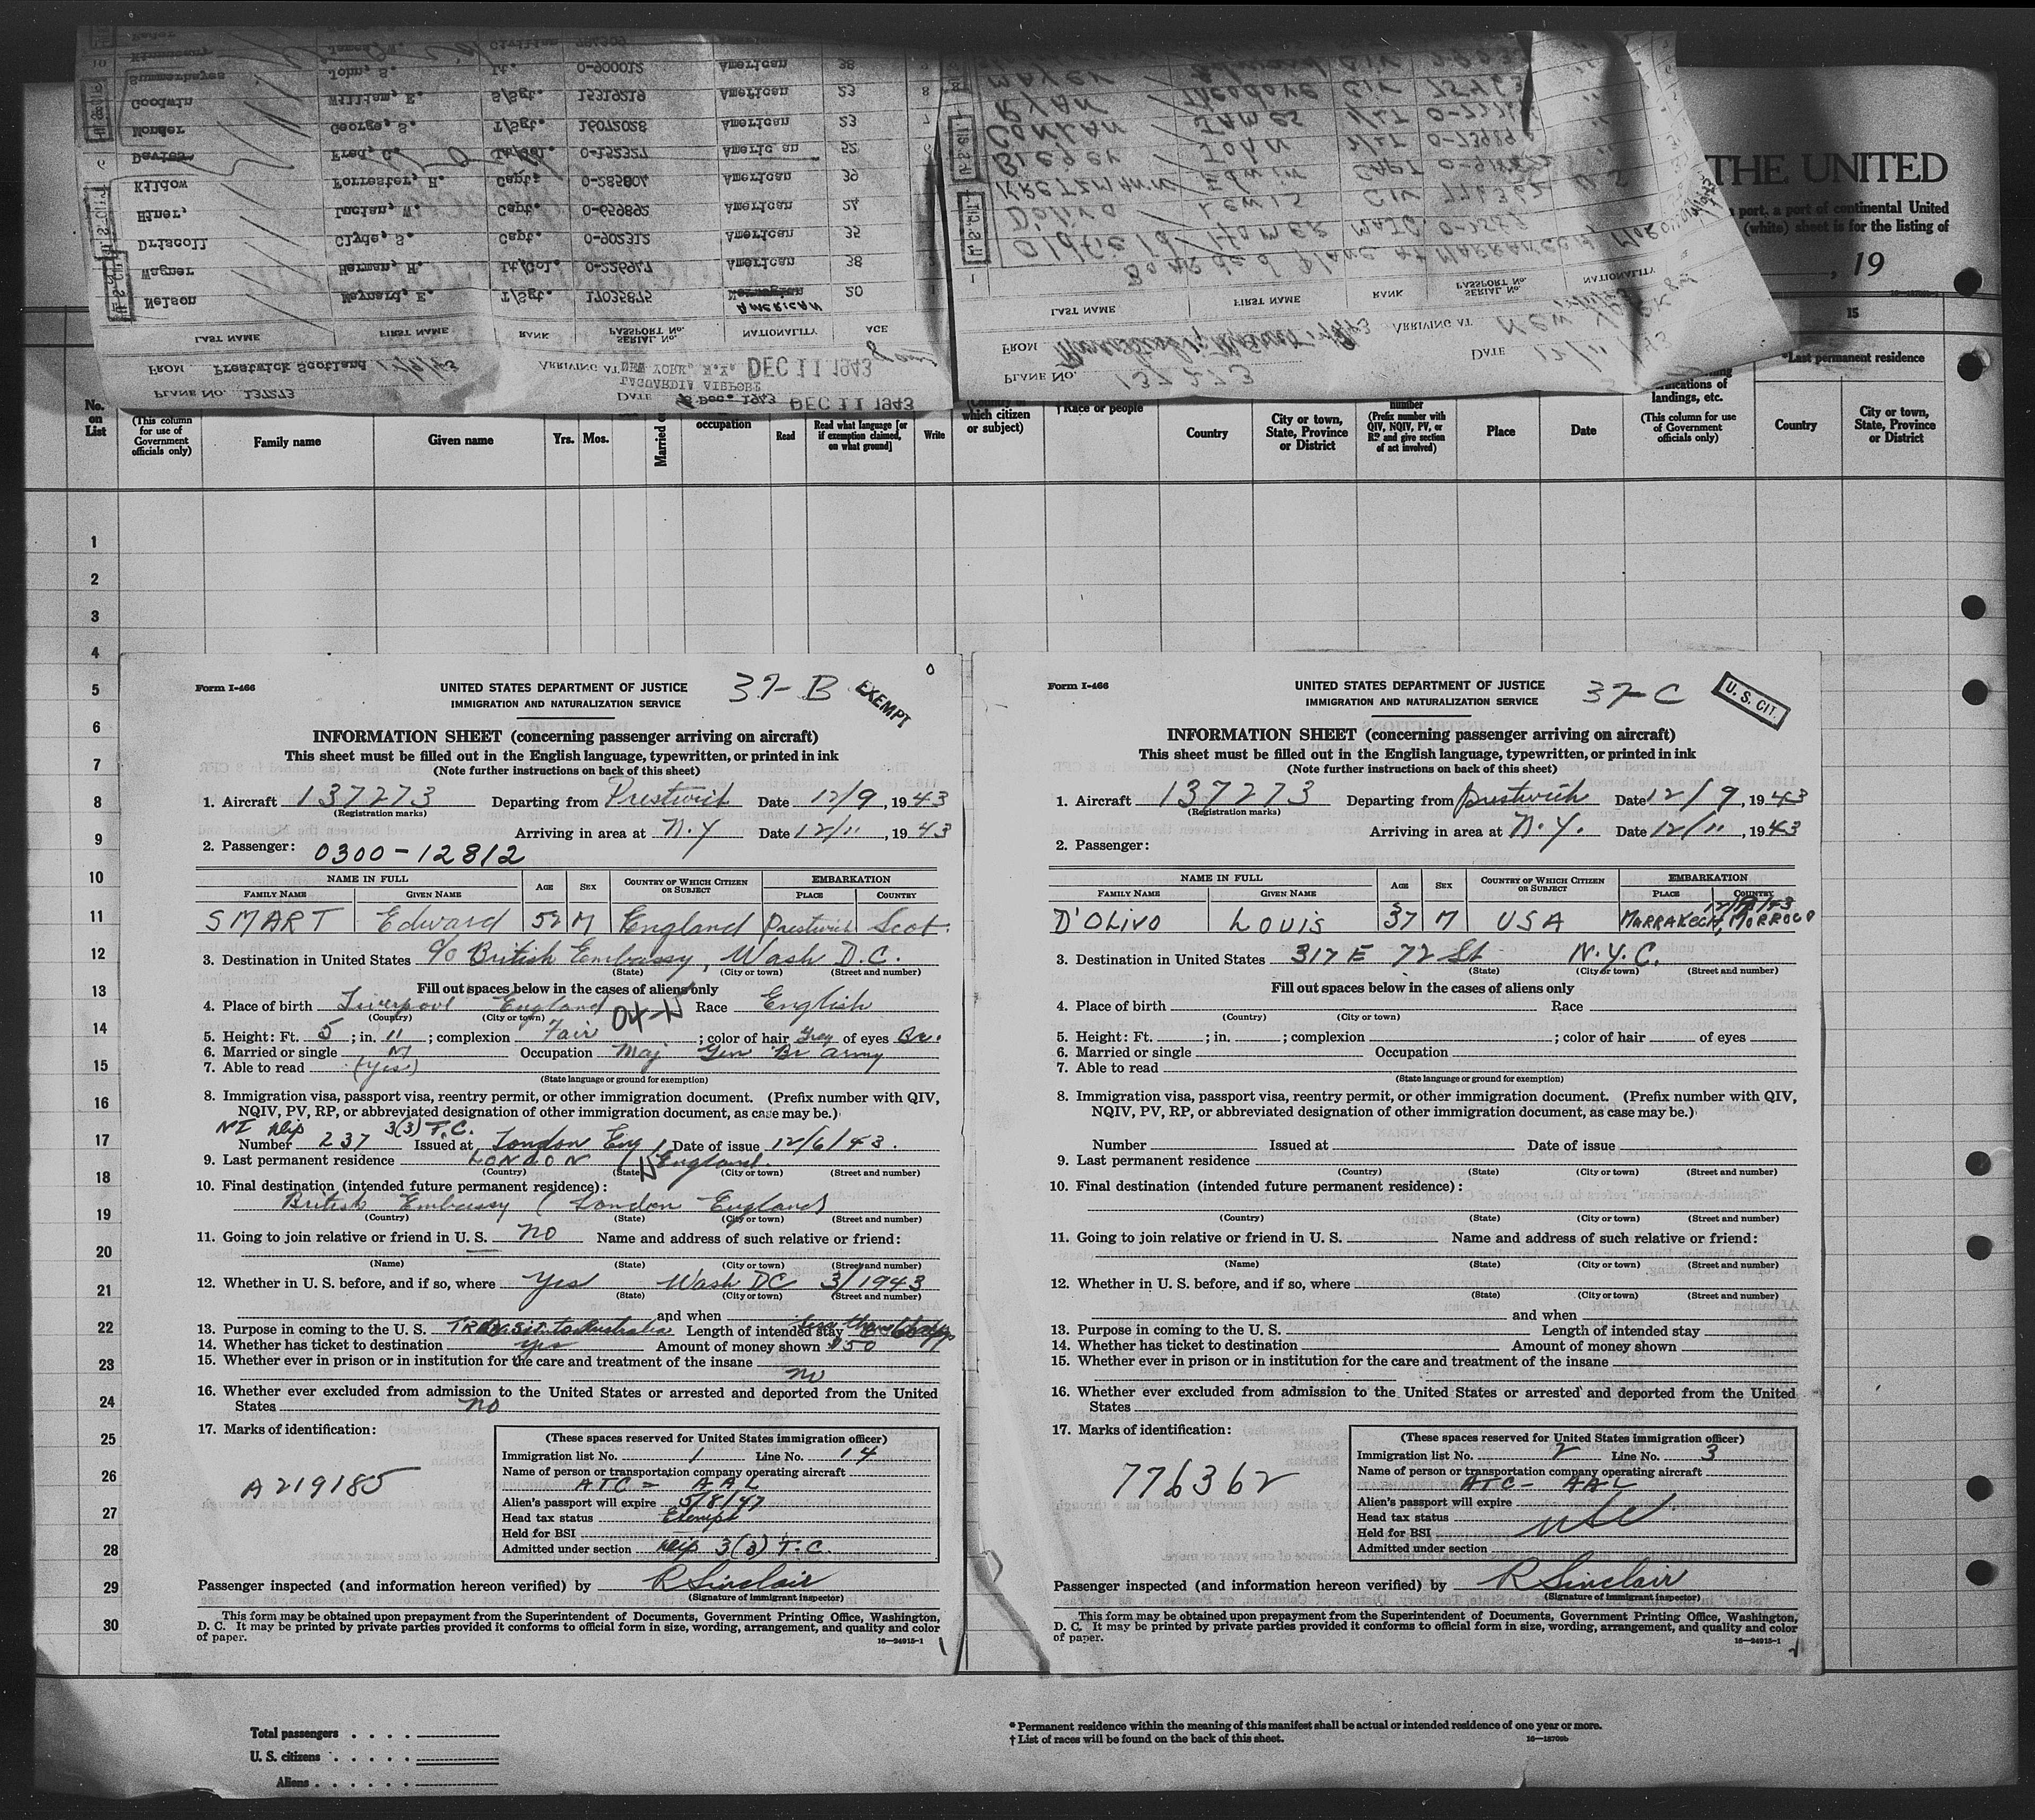 PLANE NO. 137273
DATE 8 Dec. 1943 DEC 11 1943
LAGUARDIA AIRPORT
FROM Prestwick Scotland 12/9/43 ARRIVING AT NEW YORK, N.Y. DEC 11 1943
LAST NAME FIRST NAME RANK PASSPORT No. SERIAL No. NATIONALITY AGE
Nelson Maynard, E. T/Sgt. 17035875 AMERICAN 20
Wagner Herman, H. Lt/Col. 0-226947 American 38
Driscoll Clyde, S. Capt. 0-902312 American 35
Hiner, Lucian, W. Capt. 0-659892 American 24
Kildow Forrester, H. Capt. 0-285804 American 39
Davies Fred, C. Lt/Col. 0-152327 American 52
Wonder George, S. T/Sgt. 16072028 American 23
Goodwin William, E. S/Sgt. 15319219 American 23
Summerhayes John, S. Lt. 0-900012 American 38
PLANE NO. 137273
DATE 12/11/43
FROM ARRIVING AT New York
LAST NAME FIRST NAME RANK PASSPORT No. SERIAL No. NATIONALITY
Boarded Plane at MARRAKECH,
Oldfield Homer MAJ
D'Olivo Lewis CIV 776362 U S
KRETZMANN Edwin CAPT
Bieger John
CONLAN JAMES
RYAN Theodore CIV
MAYER CIV
THE UNITED
port, a port of continental United
(white) sheet is for the listing of
, 19
15
*Last permanent residence
No. on List
(This column for use of Government officials only)
Family name
Given name
Yrs. Mos.
occupation
Read
Read what language [or if exemption claimed, on what ground]
Write
which citizen or subject)
†Race or people
Country
City or town, State, Province or District
number (Prefix number with QIV, NQIV, PV, or RP and give section of act involved)
Place
Date
landings, etc.
(This column for use of Government officials only)
Country
City or town, State, Province or District
1
2
3
4
5
6
7
8
9
10
11
12
13
14
15
16
17
18
19
20
21
22
23
24
25
26
27
28
29
30
Form I-466
UNITED STATES DEPARTMENT OF JUSTICE 37-B EXEMPT
IMMIGRATION AND NATURALIZATION SERVICE
INFORMATION SHEET (concerning passenger arriving on aircraft)
This sheet must be filled out in the English language, typewritten, or printed in ink
(Note further instructions on back of this sheet)
1. Aircraft 137273 Departing from Prestwick Date 12/9, 1943
(Registration marks)
Arriving in area at N.Y Date 12/11, 1943
2. Passenger: 0300-12812
NAME IN FULL AGE SEX COUNTRY OF WHICH CITIZEN OR SUBJECT EMBARKATION
FAMILY NAME GIVEN NAME PLACE COUNTRY
SMART Edward 52 M England Prestwick Scot.
3. Destination in United States c/o British Embassy, Wash D.C.
(State) (City or town) (Street and number)
Fill out spaces below in the cases of aliens only
4. Place of birth Liverpool England Race English
(Country) (City or town)
5. Height: Ft. 5; in. 11; complexion Fair; color of hair Grey of eyes Br.
6. Married or single M Occupation Maj Gen Br Army
7. Able to read (Yes)
(State language or ground for exemption)
8. Immigration visa, passport visa, reentry permit, or other immigration document. (Prefix number with QIV,
NQIV, PV, RP, or abbreviated designation of other immigration document, as case may be.)
3(3) T.C.
Number 237 Issued at London Eng Date of issue 12/6/43.
9. Last permanent residence LONDON England.
(Country) (State) (City or town) (Street and number)
10. Final destination (intended future permanent residence):
British Embassy (London England)
(Country) (State) (City or town) (Street and number)
11. Going to join relative or friend in U. S. no Name and address of such relative or friend:
(Name) (State) (City or town) (Street and number)
12. Whether in U. S. before, and if so, where Yes Wash DC 3/1943
(State) (City or town) (Street and number)
and when
13. Purpose in coming to the U. S. Transit to Australia Length of intended stay
14. Whether has ticket to destination yes Amount of money shown $50
15. Whether ever in prison or in institution for the care and treatment of the insane
no
16. Whether ever excluded from admission to the United States or arrested and deported from the United
States no
17. Marks of identification:
A219185
(These spaces reserved for United States immigration officer)
Immigration list No. 1 Line No. 14
Name of person or transportation company operating aircraft
ATC = AAL
Alien's passport will expire 5/8/47
Head tax status Exempt
Held for BSI
Admitted under section Dip 3(3) T.C.
Passenger inspected (and information hereon verified) by R Sinclair
(Signature of immigrant inspector)
This form may be obtained upon prepayment from the Superintendent of Documents, Government Printing Office, Washington,
D. C. It may be printed by private parties provided it conforms to official form in size, wording, arrangement, and quality and color
of paper. 16—24915-1
Form I-466
UNITED STATES DEPARTMENT OF JUSTICE 37-C U. S. CIT.
IMMIGRATION AND NATURALIZATION SERVICE
INFORMATION SHEET (concerning passenger arriving on aircraft)
This sheet must be filled out in the English language, typewritten, or printed in ink
(Note further instructions on back of this sheet)
1. Aircraft 137273 Departing from Prestwick Date 12/9, 1943
(Registration marks)
Arriving in area at N.Y. Date 12/11, 1943
2. Passenger:
NAME IN FULL AGE SEX COUNTRY OF WHICH CITIZEN OR SUBJECT EMBARKATION
FAMILY NAME GIVEN NAME PLACE COUNTRY
D'OLIVO LOUIS 37 M USA MARRAKECH, MORROCO
3. Destination in United States 317 E 72 St N.Y.C.
(State) (City or town) (Street and number)
Fill out spaces below in the cases of aliens only
4. Place of birth Race
(Country) (City or town)
5. Height: Ft. ; in. ; complexion ; color of hair of eyes
6. Married or single Occupation
7. Able to read
(State language or ground for exemption)
8. Immigration visa, passport visa, reentry permit, or other immigration document. (Prefix number with QIV,
NQIV, PV, RP, or abbreviated designation of other immigration document, as case may be.)
Number Issued at Date of issue
9. Last permanent residence
(Country) (State) (City or town) (Street and number)
10. Final destination (intended future permanent residence):
(Country) (State) (City or town) (Street and number)
11. Going to join relative or friend in U. S. Name and address of such relative or friend:
(Name) (State) (City or town) (Street and number)
12. Whether in U. S. before, and if so, where
(State) (City or town) (Street and number)
and when
13. Purpose in coming to the U. S. Length of intended stay
14. Whether has ticket to destination Amount of money shown
15. Whether ever in prison or in institution for the care and treatment of the insane
16. Whether ever excluded from admission to the United States or arrested and deported from the United
States
17. Marks of identification:
776362
(These spaces reserved for United States immigration officer)
Immigration list No. 2 Line No. 3
Name of person or transportation company operating aircraft
ATC - AAL
Alien's passport will expire
Head tax status
Held for BSI USC
Admitted under section
Passenger inspected (and information hereon verified) by R Sinclair
(Signature of immigrant inspector)
This form may be obtained upon prepayment from the Superintendent of Documents, Government Printing Office, Washington,
D. C. It may be printed by private parties provided it conforms to official form in size, wording, arrangement, and quality and color
of paper. 16—24915-1
Total passengers
U. S. citizens
Aliens
* Permanent residence within the meaning of this manifest shall be actual or intended residence of one year or more.
† List of races will be found on the back of this sheet.